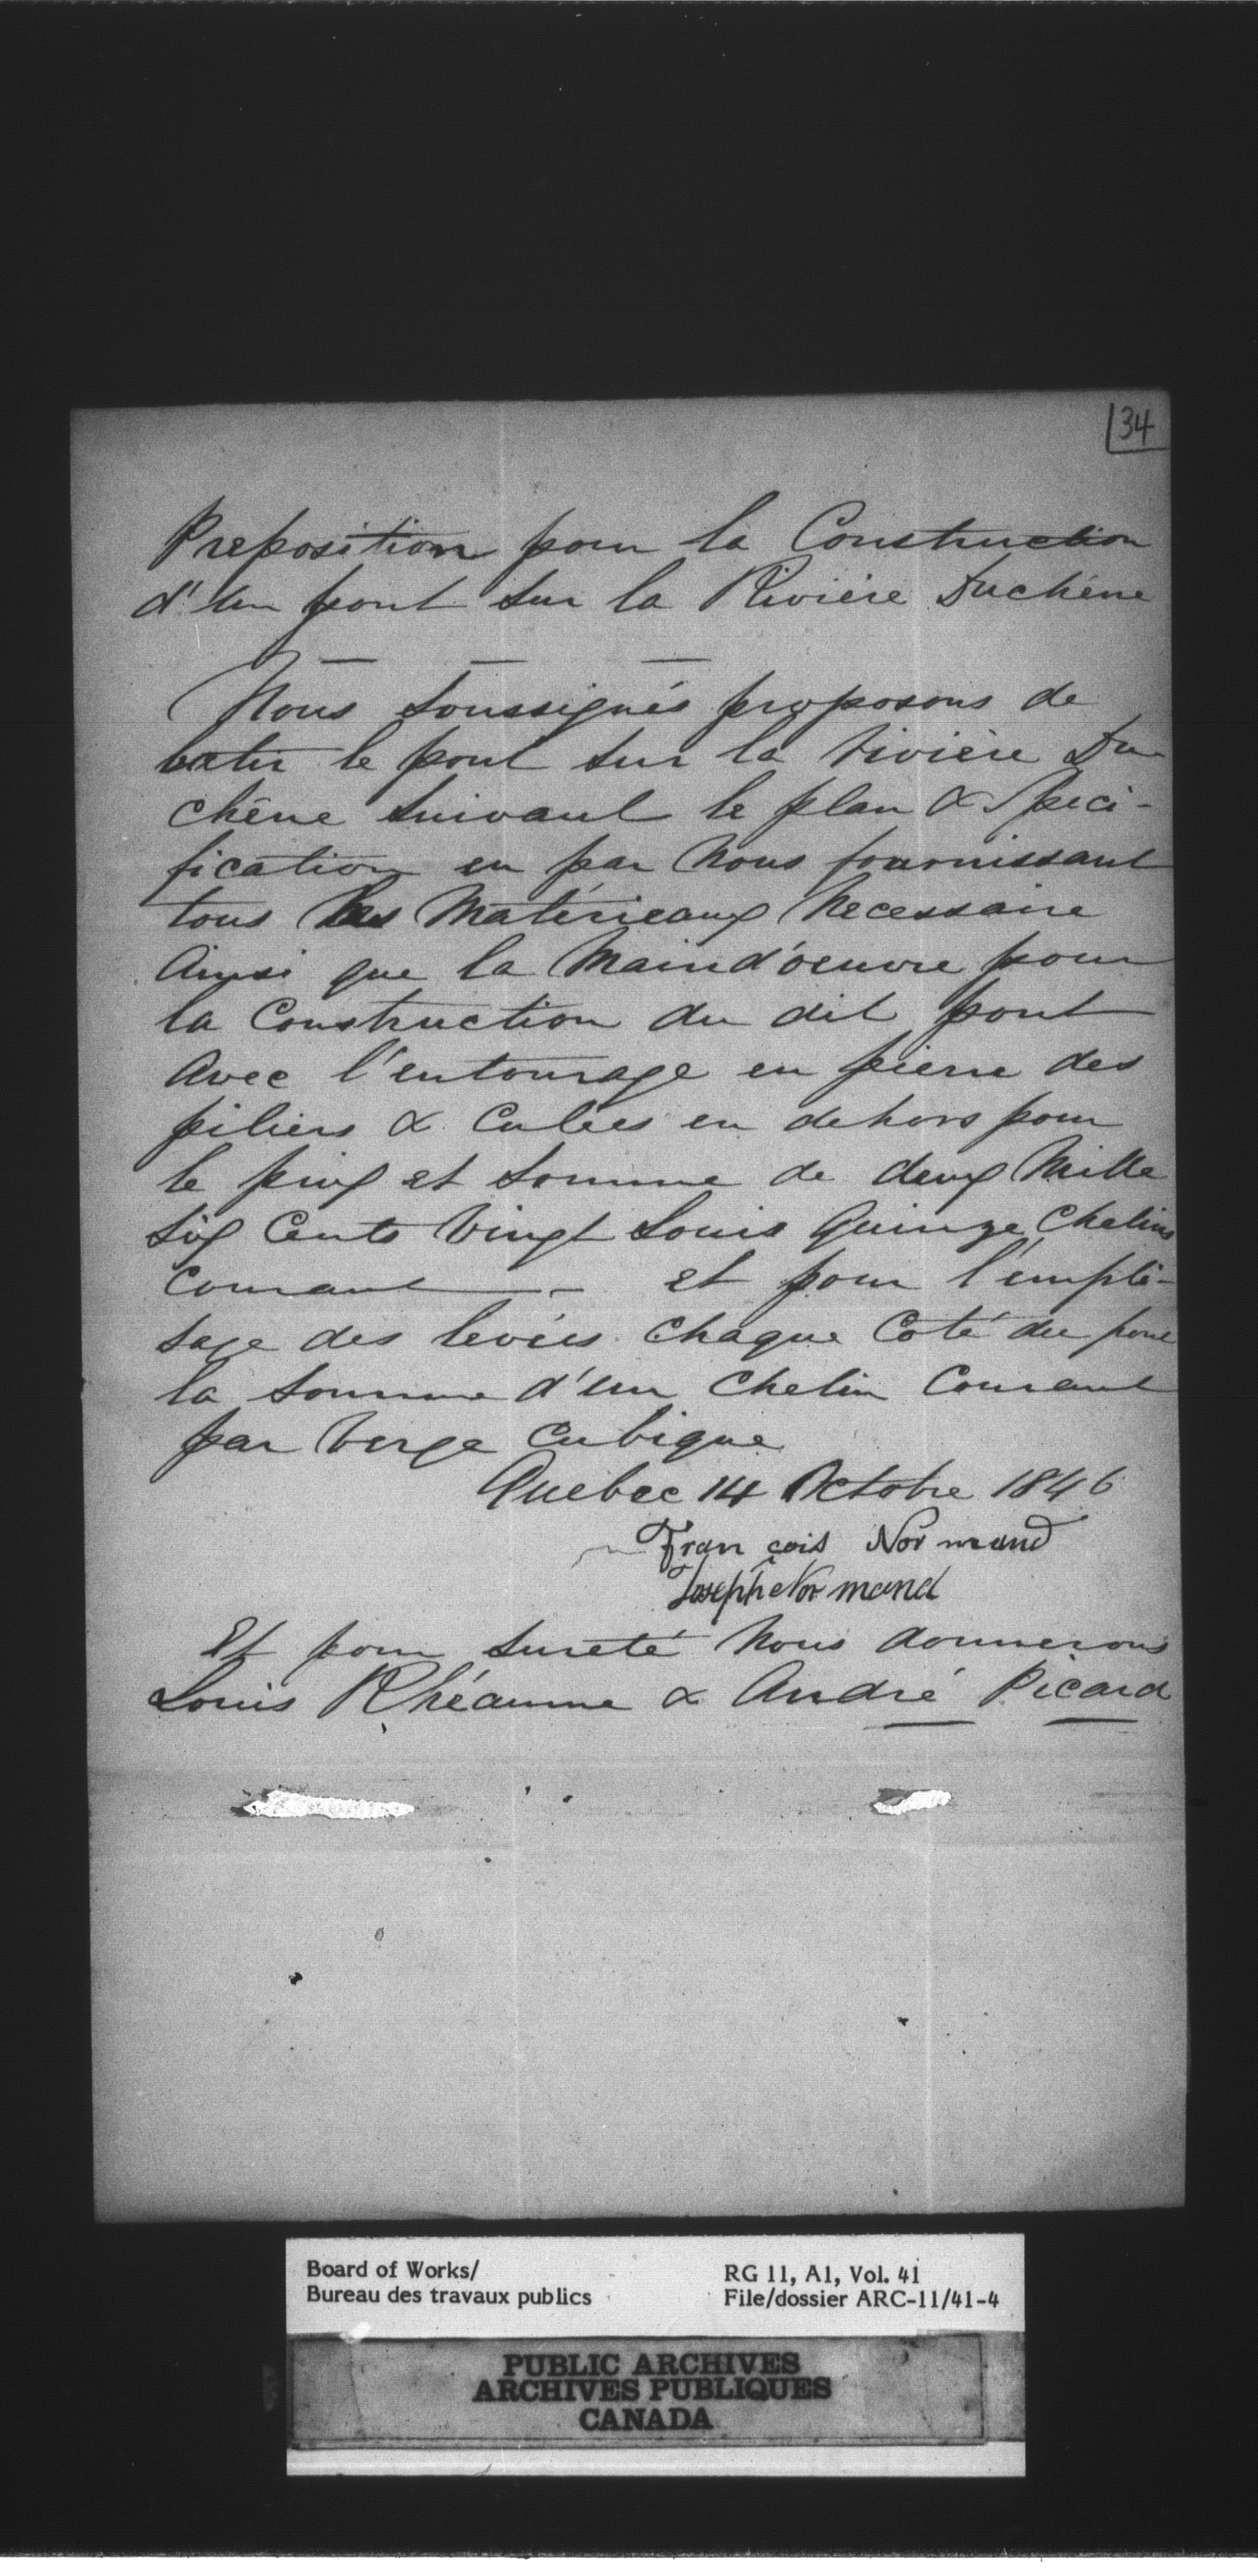 34
Preposition pour la Construction
d'un pont sur la Riviére Duchêne
Nous soussignés proposons de
batir le pont sur la rivière Du
chêne suivant le plan & Speci-
fication en par nous fournissant
tous les Matérieaux Necessaire
Ainsi que la Maind'oeuvre pour
la Construction du dit pont
Avec l'entourage en pierre des
piliers & Culées en dehors pour
le prix et somme de deux Mille
six Cents Vingt Louis Quinze Chelins
Courant — et pour l'empli-
sage des levées chaque Coté du pont
la somme d'un Chelin Courant
par Verge Cubique
Quebec 14 Octobre 1846
François Normand
Joseph Normand
Et pour sureté Nous donnerons
Louis Rhéaume & André Picard
Board of Works/
Bureau des travaux publics
RG 11, A1, Vol. 41
File/dossier ARC-11/41-4
PUBLIC ARCHIVES
ARCHIVES PUBLIQUES
CANADA